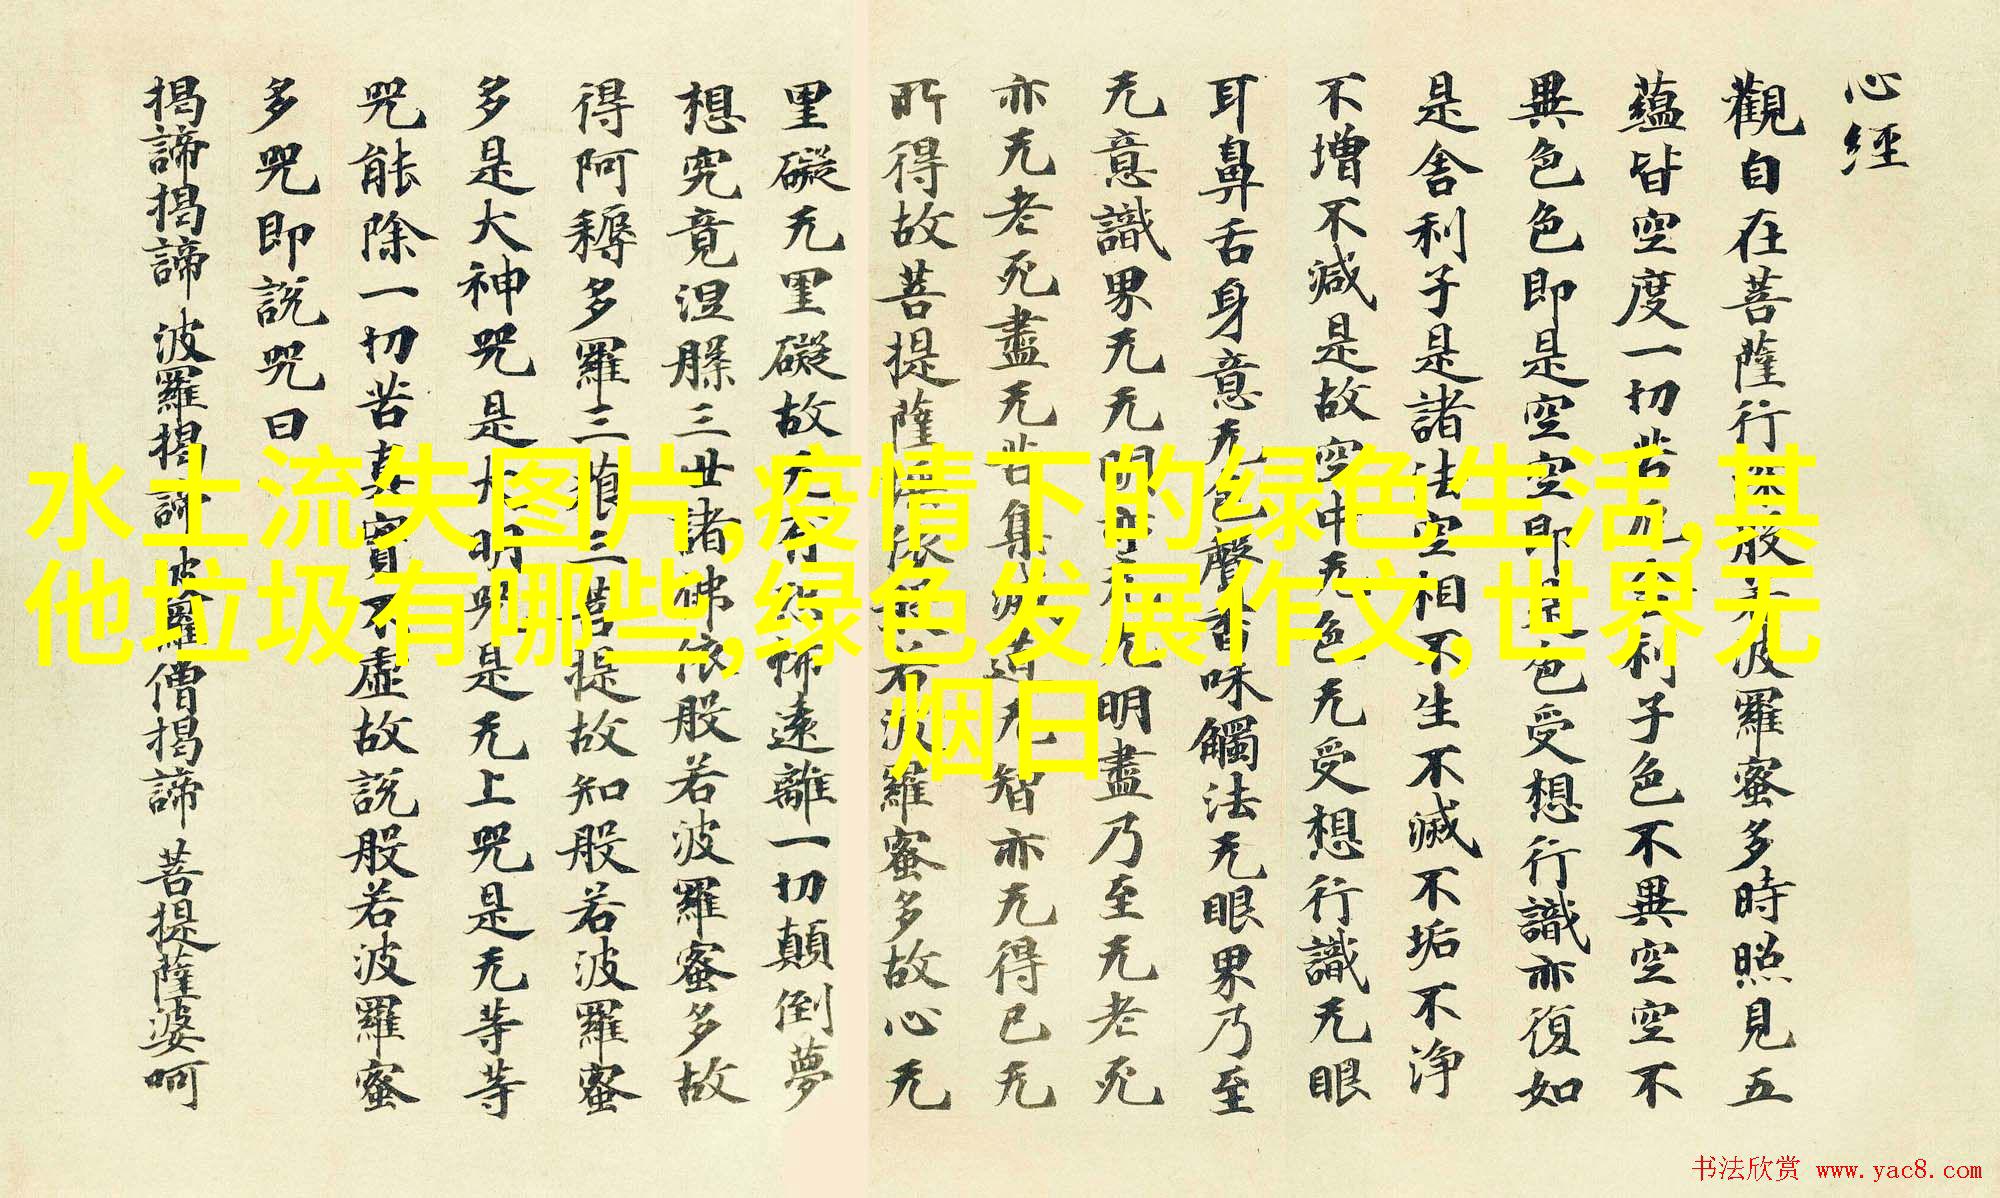 心經
觀自在菩薩行深般若波羅蜜多時照見五
蘊皆空度一切苦厄舍利子色不異空空不
異色色即是空空即是色受想行識亦復如
是舍利子是諸法空相不生不滅不垢不淨
不增不減是故空中无色无受想行識无眼
耳鼻舌身意无色聲香味觸法无眼界乃至
无意識界无无明亦无无明盡乃至无老死
亦无老死盡无苦集滅道无智亦无得已无
所得故菩提薩埵依般若波羅蜜多故心无
罣礙无罣礙故无有恐怖遠離一切顛倒夢
想究竟涅槃三世諸佛依般若波羅蜜多故
得阿耨多羅三藐三菩提故知般若波羅蜜
多是大神咒是大明咒是无上咒是无等等
咒能除一切苦真實不虛故說般若波羅蜜
多咒即說咒曰
揭諦揭諦 波羅揭諦 波羅僧揭諦 菩提薩婆呵
水土流失图片,疫情下的绿色生活,其
他垃圾有哪些,绿色发展作文,世界无
烟日
书法欣赏 www.yac8.com